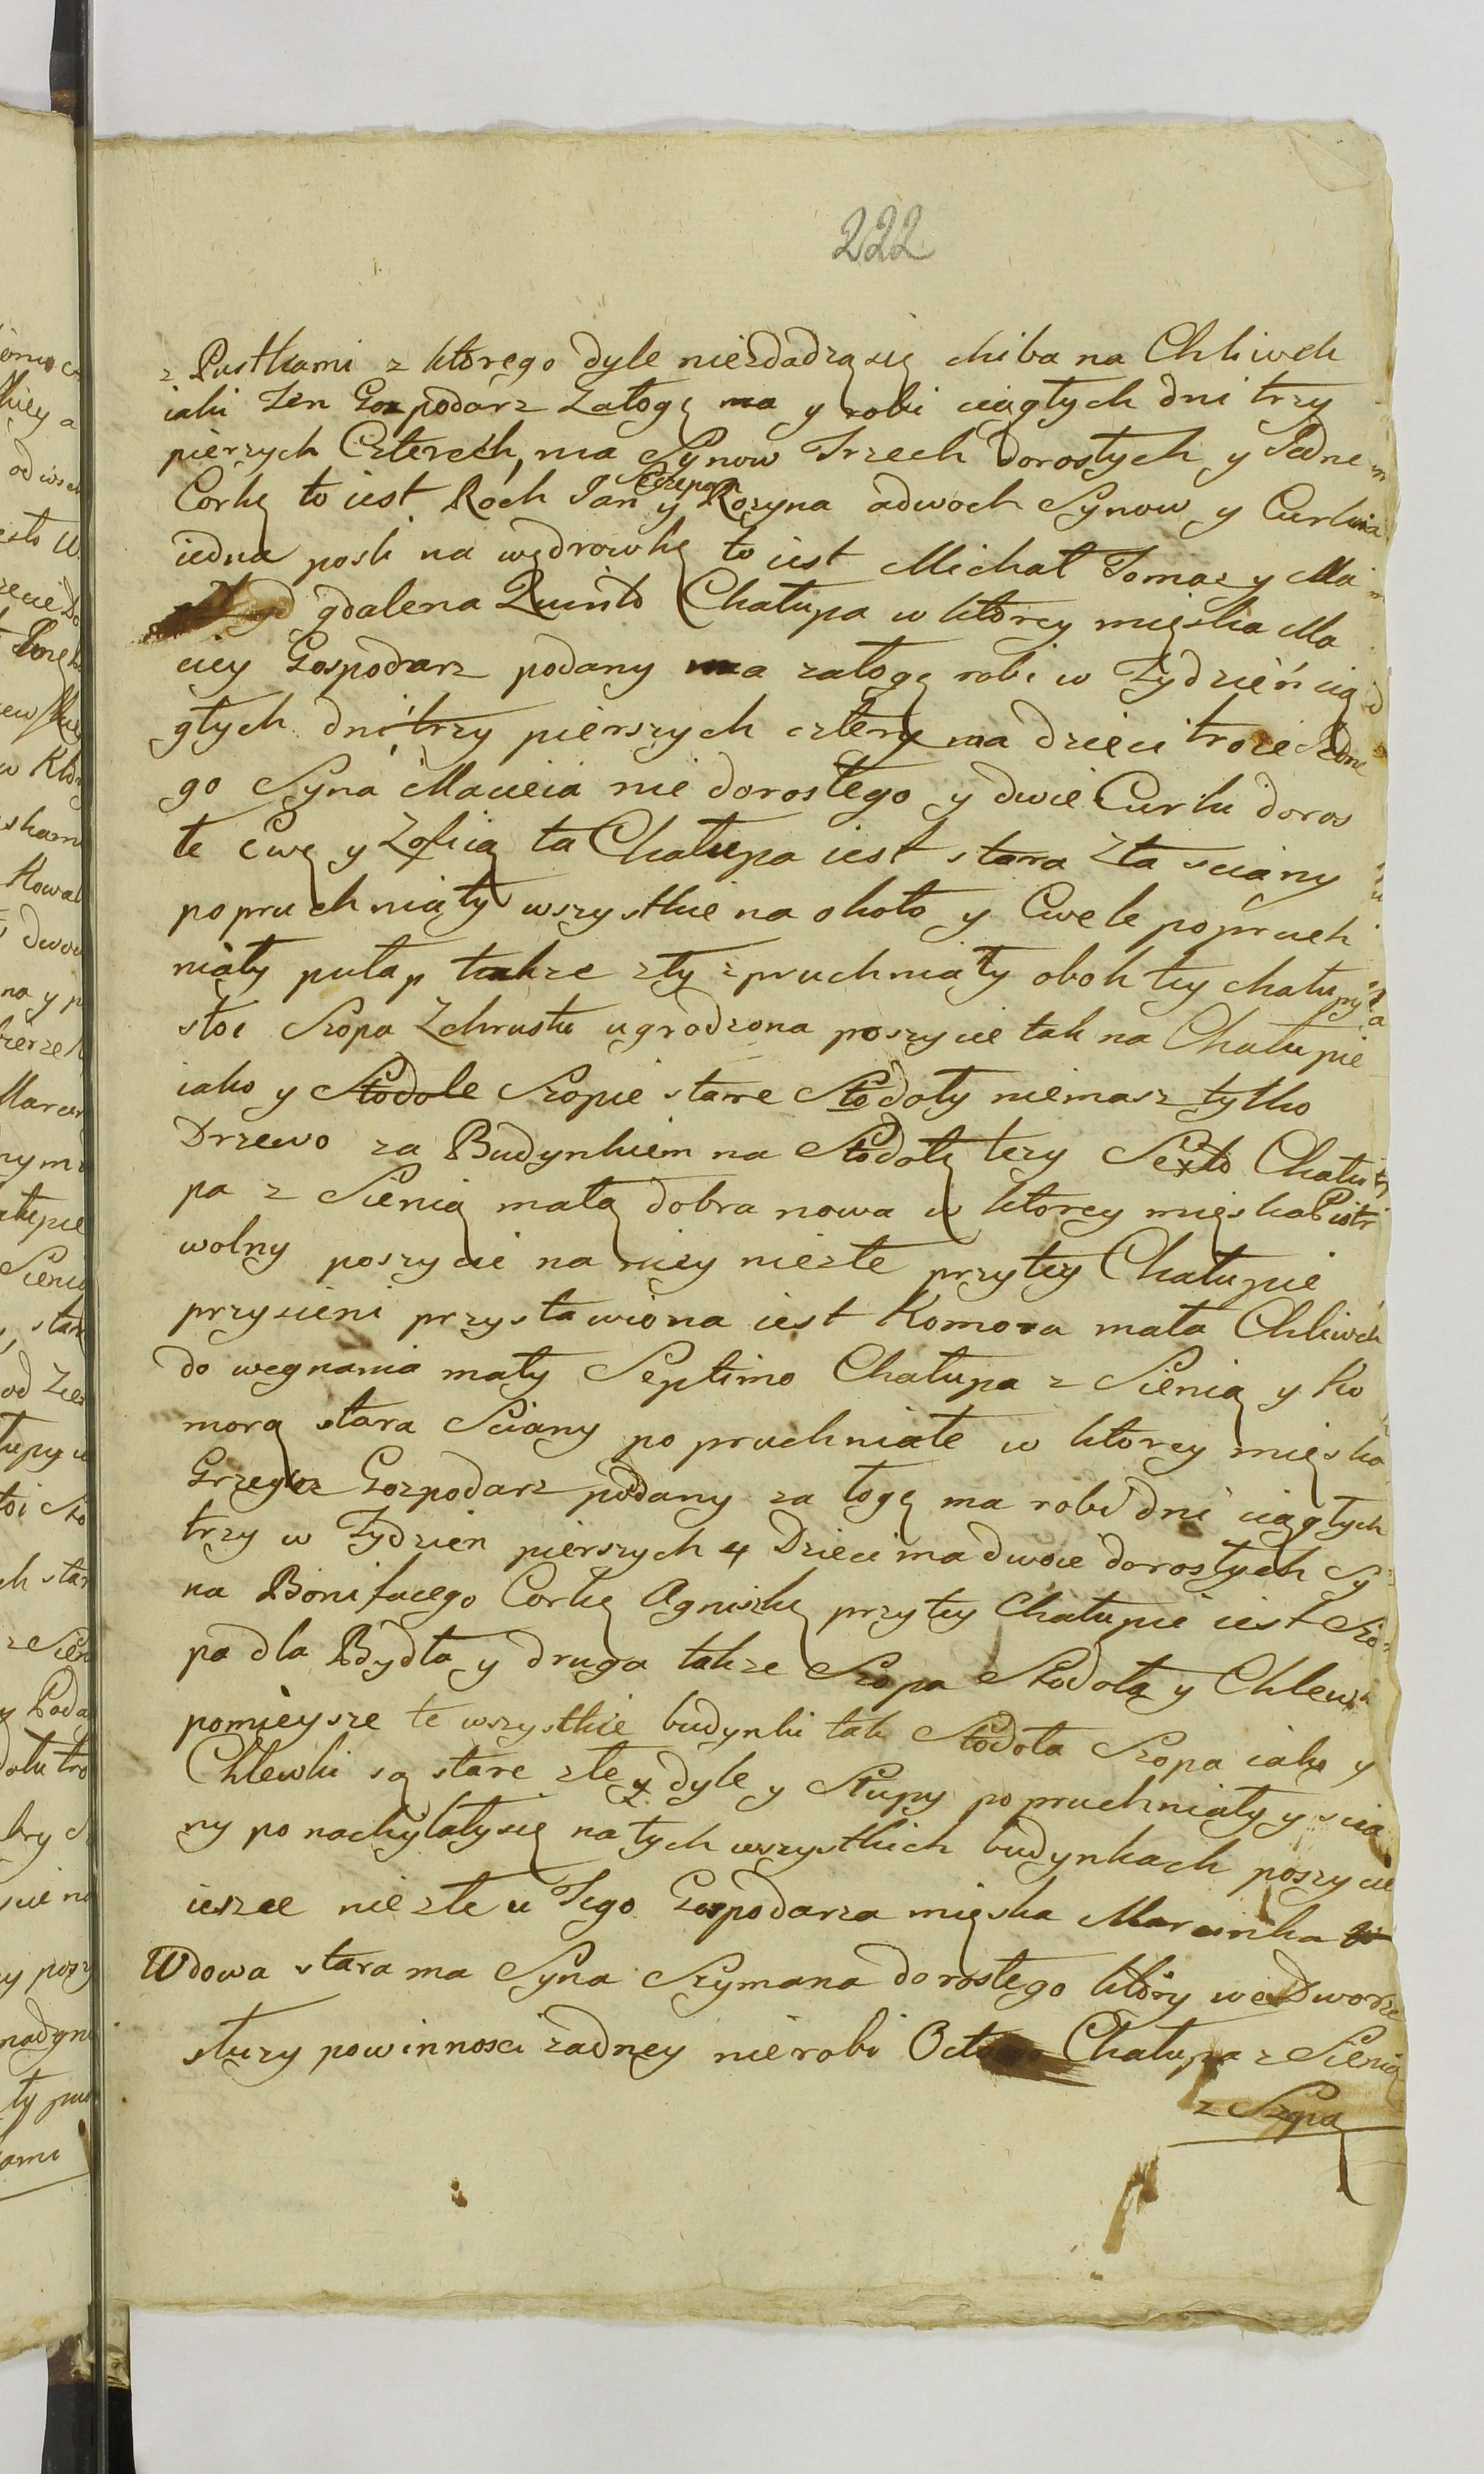 222
z Pustkami z ktorego dyle niezdadzą się chiba na Chliwek
iaki Ten Gozpodarz Załogę ma y robi ciągłych dni trzy
pierzych Czterech, ma Synow Trzech Dorosłych y Jedne
Corkę to iest Roch Jan Szczepan y Rozyna adwoch Synow y Curka
iedna posli na wędrowkę to iest Michał Tomaz y Ma
gdalena Quinto Chałupa w ktorey mięska Ma
ciey Gospodarz podany ma załogę robi w Tydzień cią
głych dni trzy pierszych cztery ma dzieci troie Jedne
go Syna Macieia nie dorosłego y dwie Curki doros
łe Ewę y Zofią ta Chałupa iest stara Zła sciany
popruchniały wszystkie na około y Cwele popruch
niały pułap takze zły spruchniały obok tey chałupy
stoi Szopa Zchrustu ugrodzona poszycie tak na Chałupie
iako y Stodole Szopie stare Stodoły niemasz tylko
Drzewo za Budynkiem na Stodołę lezy Sexto Chału
pa z Sienią małą dobra nowa w ktorey mięska Piotr
wolny poszycie na niey niezłe przytey Chałupie
przysieni przystawiona iest Komora mała Chliwek
do wegnania mały Septimo Chałupa z Sienią y Ko
morą stara Sciany popruchniałe w ktorey mięska
Grzegorz Gozpodarz podany załogę ma robi dni ciągłych
trzy w Tydzien pierszych 4 Dzieci ma dwoie dorosłych Sy
na Bonifacego Corkę Agniszkę przytey Chałupie iest Szo
pa dla Bydła y druga takze Szopa Stodołą y Chlewki
pomieysze te wszystkie budynki tak Stodoła Szopa iako y
Chlewki są stare złe y dyle y Słupy popruchniały y scia
ny ponachylały się natych wszystkich budynkach poszycie
iesce niezłe u Tego Gospodarza mięska Marcinka
Wdowa stara ma Syna Szymana dorosłego ktory we Dworze
słuzy powinnosci zadney nierobi Octavo Chałupa z Sienią
z Szopą